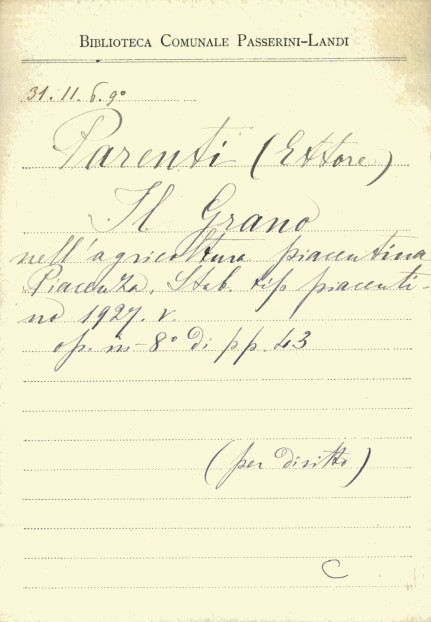 BIBLIOTECA COMUNALE PASSERINI-LANDI
31. 11. 6. 9º
Parenti (Ettore)
Il Grano
nell'agricoltura piacentina
Piacenza, Stab. tip piacenti-
no 1927. v.
op. in-8º di pp. 43
(per diritto)
C